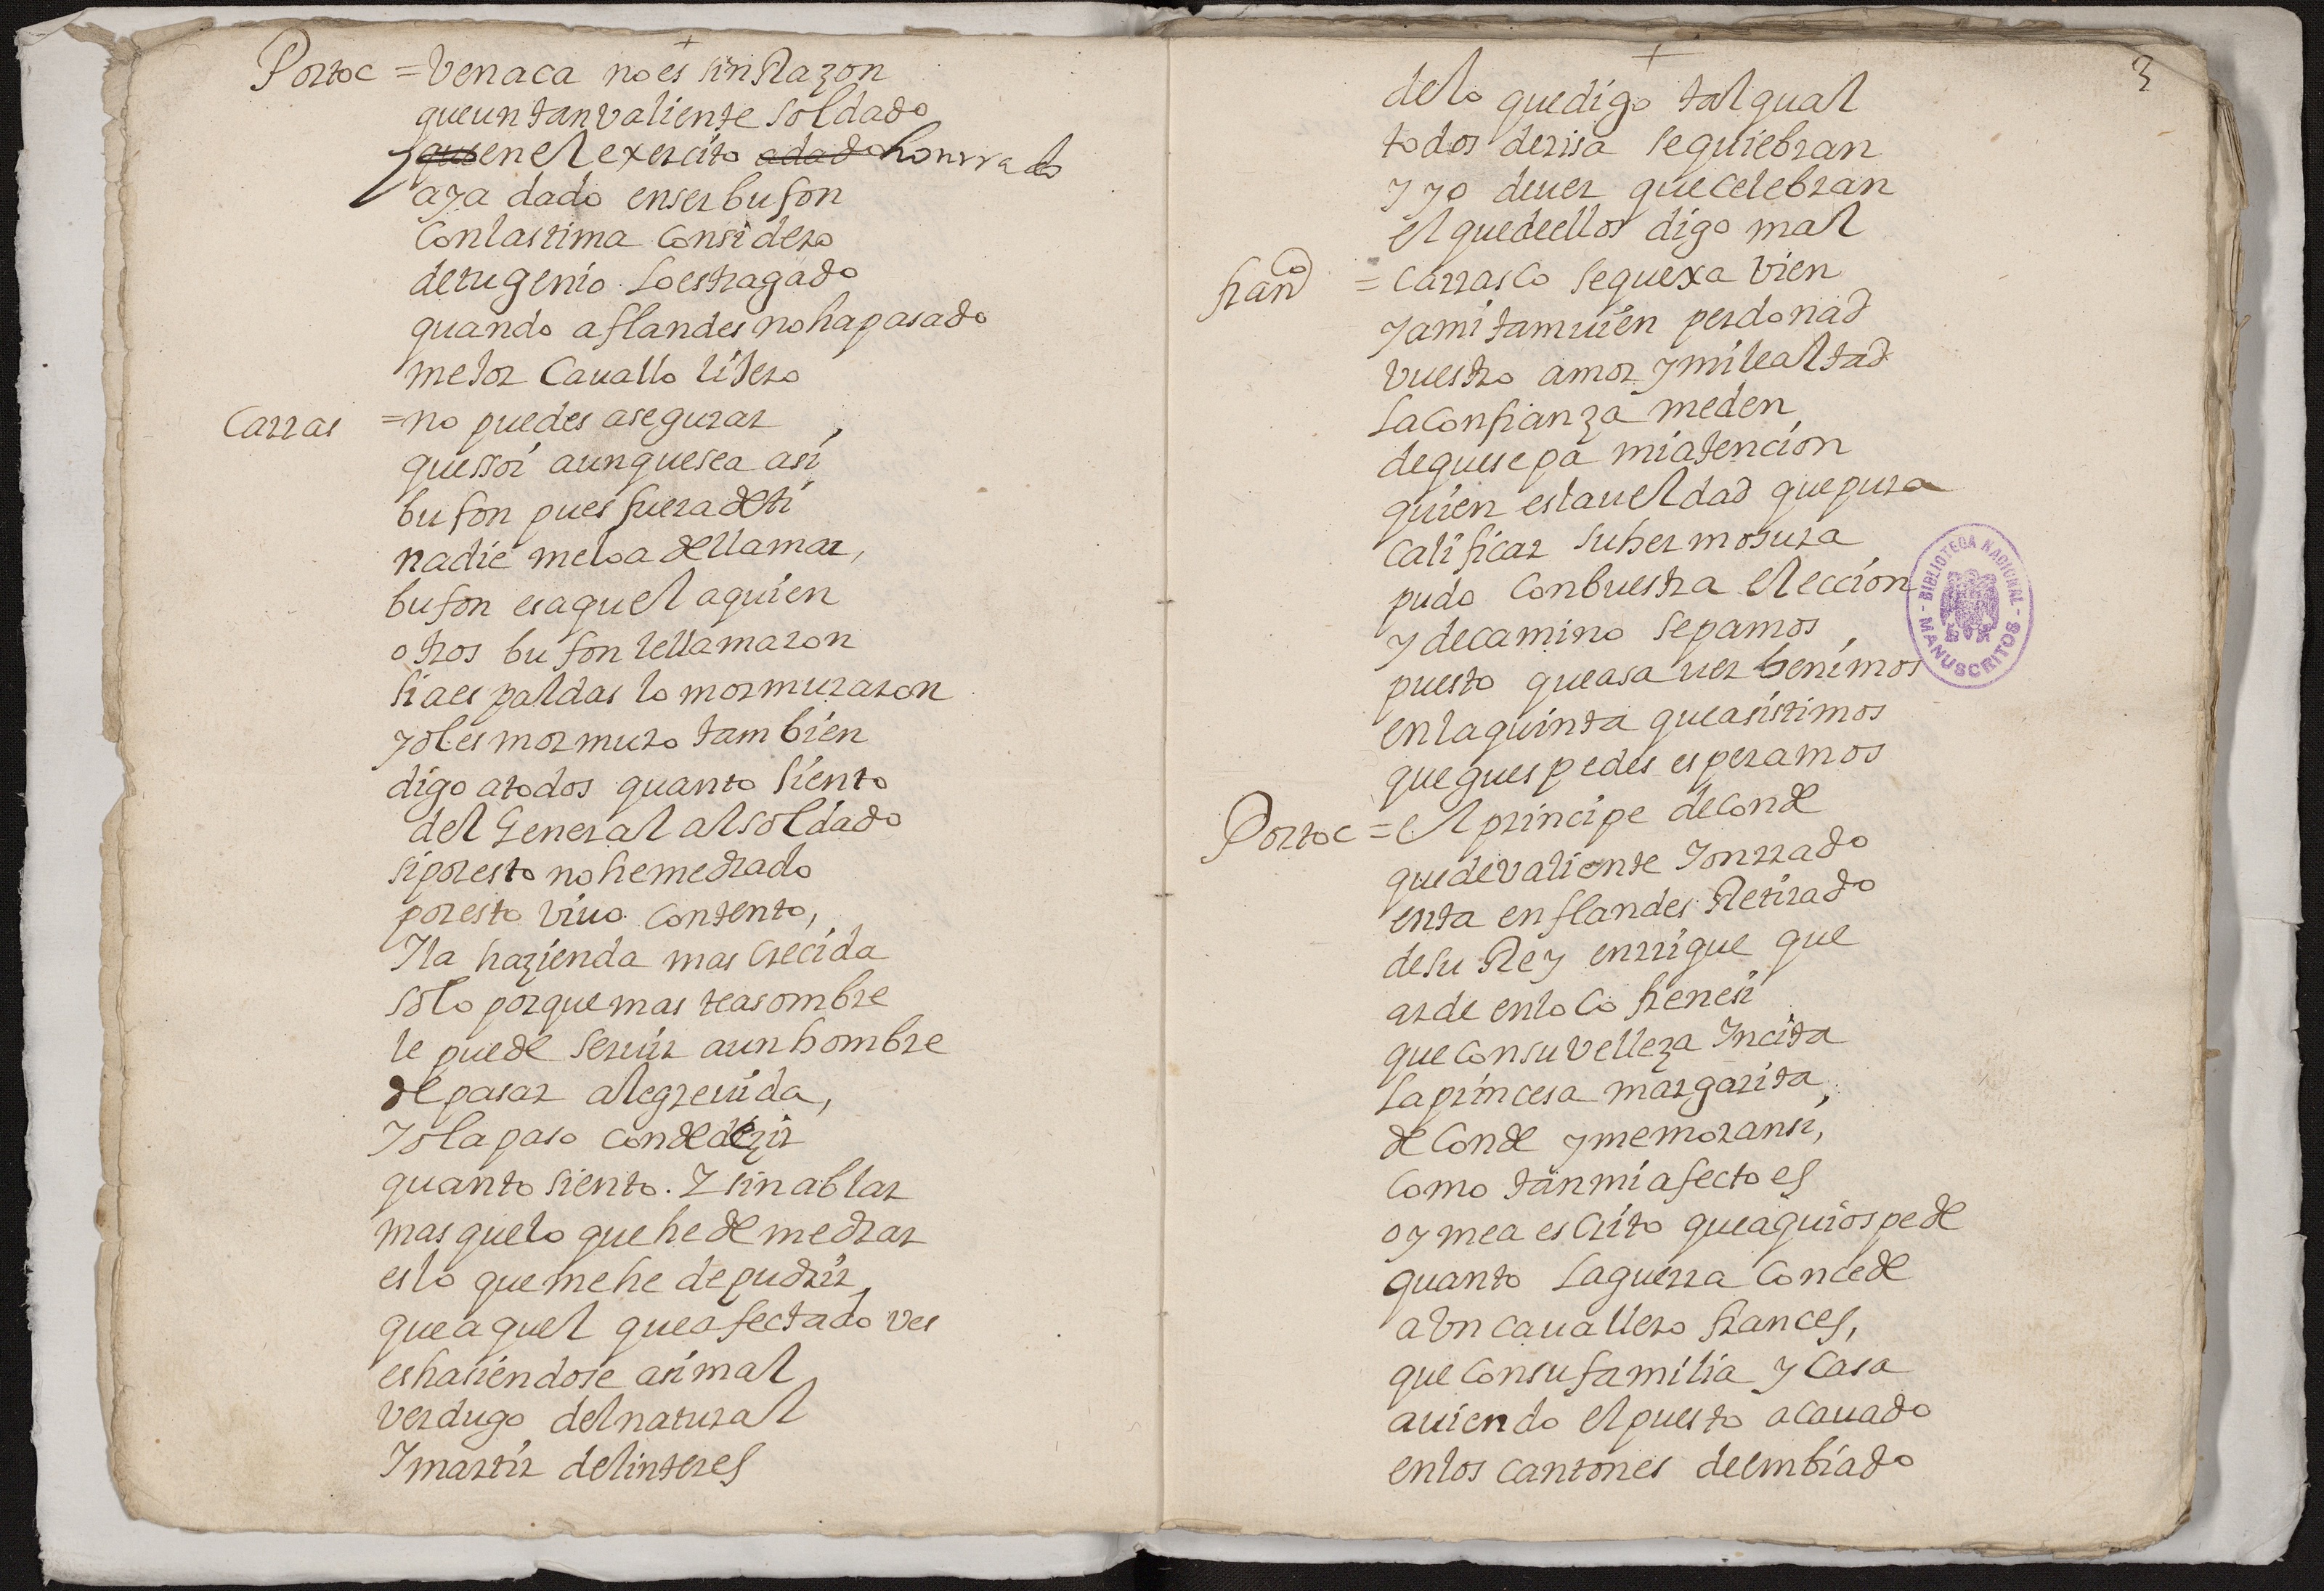 +
Portoc = Venaca no es sin Razon
que un tan valiente soldado
y que en el exercito adado honrrado
aya dado en ser bufon
Con lastima Considero
de tu genio lo estragado
quando a flandes no ha pasado
mejor Cauallo lijero
Carras = no puedes asegurar
que soi aunque sea asi
bufon pues fuera de ti
nadie me lo a de llamar,
bufon es aquel a quien
otros bufon le llamaron
si a espaldas lo mormuraron
yo les mormuro tambien
digo a todos quanto siento
del General al soldado
si por esto no he medrado
por esto viuo contento,
Y la hazienda mas Crecida
solo porque mas te asombre
le puede seruir a un hombre
de pasar alegre uida,
Yo la paso con de dezir
quanto siento. Y sin ablar
mas que lo que he de medrar
es lo que me he de pudrir,
que aquel que afectado ves
es hasiendose asi mal
verdugo del natural
Y martir del interes
+
3
de lo que digo tal qual
todos de risa se quiebran
y yo de uer que celebran
el que de ellos digo mal
franco = Carrasco se quexa bien
y a mi tamuien perdonad
vuestro amor y mi lealtad
la Confianza me den
de que sepa mi atencion
quien es la ueldad que pura
calificar su hermosura
pudo Con buestra eleccion
y de camino sepamos,
puesto que a sauer benimos
en la quinta que asistimos
que guespedes esperamos
Portoc = el principe de Conde
que de valiente Y onrrado
enta en flandes Retirado
de su Rey enrrique que
arde en loco frenesi
que con su velleza Incita
la princesa margarita,
de Conde y memoransi,
Como tan mi afecto es
oy me a escrito que aqui ospede
quanto la guerra Concede
a Un cauallero frances,
que con su familia y Casa
auiendo el puesto acauado
en los cantones de embiado
BIBLIOTECA NACIONAL
MANUSCRITOS